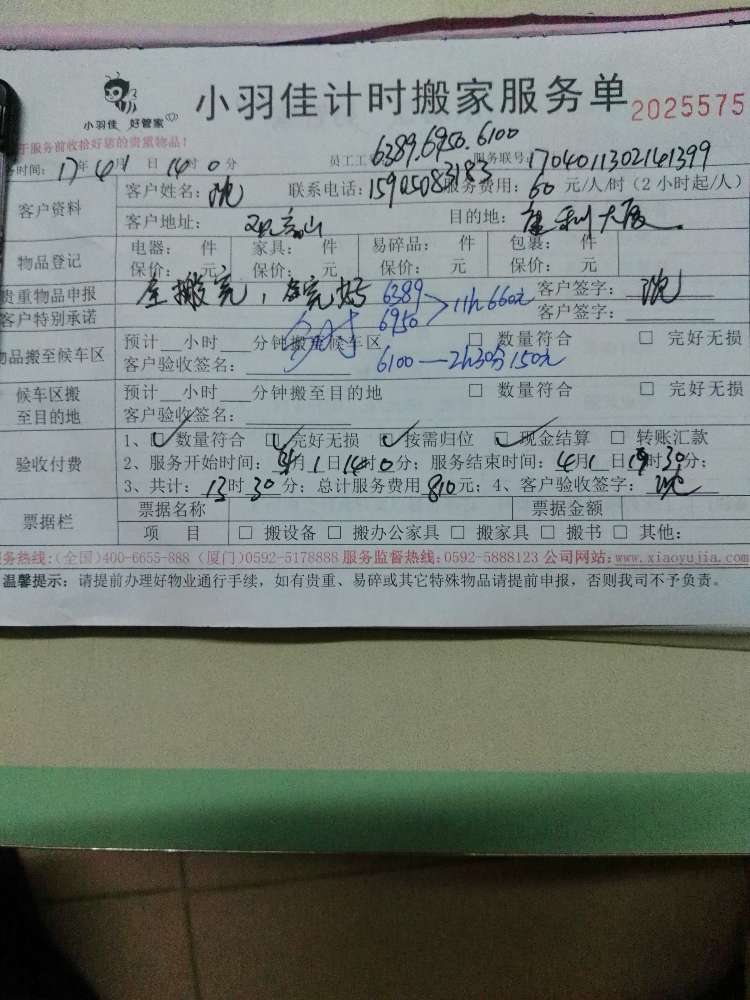 小羽佳 好管家
小羽佳计时搬家服务单 2025575
于服务前收拾好您的贵重物品！
务时间：17年4月1日14时0分 员工工 6389.6950.6100 服务联号：1704011302141399
客户资料 客户姓名：沈 联系电话：15905083183 服务费用：60元/人/时（2小时起/人）
客户地址： 目的地：
物品登记 电器： 件 家具： 件 易碎品： 件 包裹： 件
保价： 元 保价： 元 保价： 元 保价： 元
贵重物品申报 全搬完， 6389 > 11h 660元 客户签字：沈
客户特别承诺 6950 客户签字：
物品搬至候车区 预计 小时 分钟搬至候车区 □ 数量符合 □ 完好无损
客户验收签名： 6100—2h30分 150元
候车区搬至目的地 预计 小时 分钟搬至目的地 □ 数量符合 □ 完好无损
客户验收签名：
验收付费 1、☑数量符合 ☑完好无损 ☑按需归位 ☑现金结算 □ 转账汇款
2、服务开始时间：4月1日14时0分；服务结束时间：4月1日19时30分；
3、共计：13时30分；总计服务费用810元；4、客户验收签字：沈
票据栏 票据名称 票据金额
项 目 □ 搬设备 □ 搬办公家具 □ 搬家具 □ 搬书 □ 其他：
务热线：（全国）400-6655-888（厦门）0592-5178888 服务监督热线：0592-5888123 公司网站：www.xiaoyujia.com
温馨提示：请提前办理好物业通行手续，如有贵重、易碎或其它特殊物品请提前申报，否则我司不予负责。